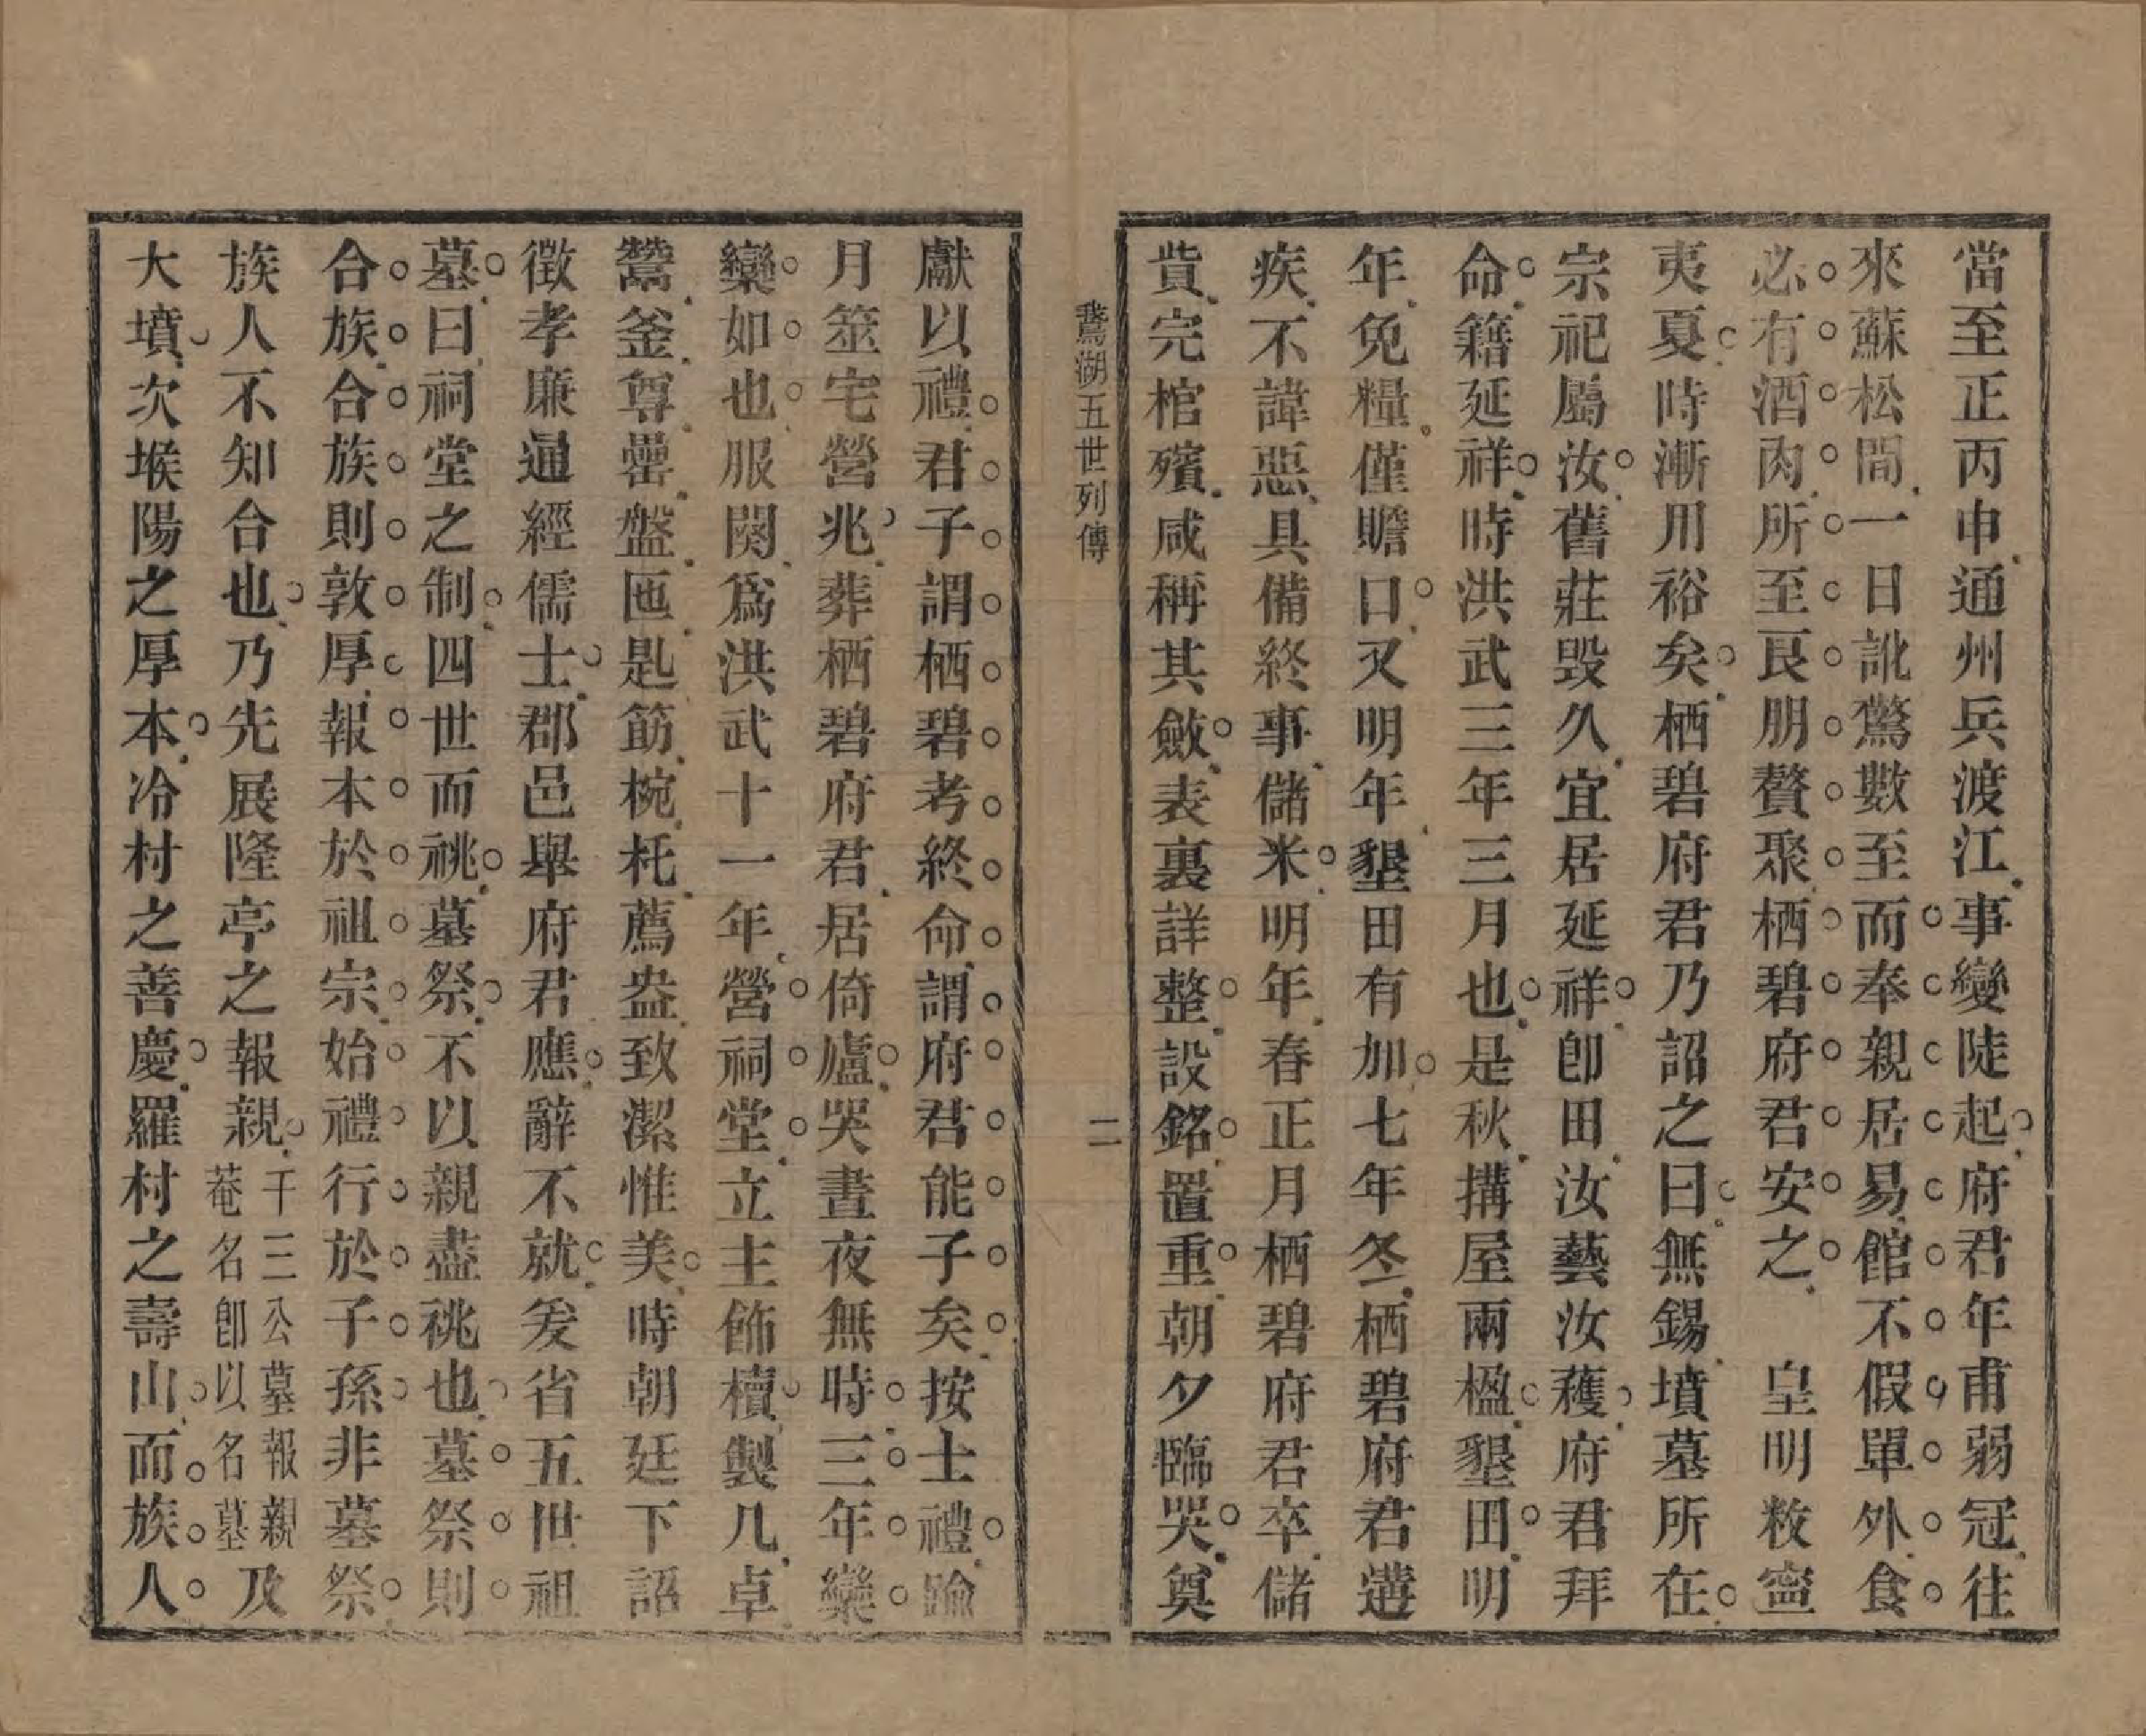 當至正丙申通州兵渡江事變陡起府君年甫弱冠往
來蘇松間一日訛驚數至而奉親居易館不假單外食
必有酒肉所至良朋贅聚栖碧府君安之　皇明敉寍
夷夏時漸用裕矣栖碧府君乃詔之曰無錫墳墓所在
宗祀屬汝舊莊毁久宜居延祥卽田汝藝汝穫府君拜
命籍延祥時洪武三年三月也是秋搆屋兩楹墾田明
年免糧僅贍口又明年墾田有加七年冬栖碧府君遘
疾不諱惡具備終事儲米明年春正月栖碧府君卒儲
貲完棺殯咸稱其斂表裏詳整設銘置重朝夕臨哭奠
鵞湖五世列傳
二
獻以禮君子謂栖碧考終命謂府君能子矣按士禮踰
月筮宅營兆葬栖碧府君居倚廬哭晝夜無時三年欒
欒如也服闋爲洪武十一年營祠堂立主飾櫝製几卓
鬵釜尊罍盤匜匙筯椀托薦盎致潔惟美時朝廷下詔
徵孝廉通經儒士郡邑舉府君應辭不就爰省五世祖
墓曰祠堂之制四世而祧墓祭不以親盡祧也墓祭則
合族合族則敦厚報本於祖宗始禮行於子孫非墓祭
族人不知合也乃先展隆亭之報親千三公墓報親菴名卽以名墓及
大墳次堠陽之厚本冷村之善慶羅村之壽山而族人